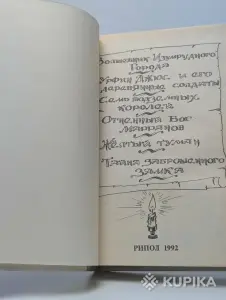 Волшебник Изумрудного
Города
Урфин Джюс и его
деревянные солдаты
Семь подземных
королей
Огненный Бог
Марранов
Жёлтый туман
Тайна заброшенного
замка
РИПОЛ 1992
KUPIKA